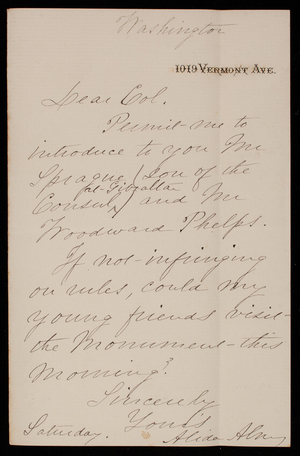 Washington
1019 VERMONT AVE.
Dear Col.
Permit me to
introduce to you Mr
Sprague (son of the
Consul at Gibraltar) and Mr
Woodward Phelps.
If not infringing
on rules, could my
young friends visit
the Monument this
morning?
Sincerely
Yours
Saturday. Alida